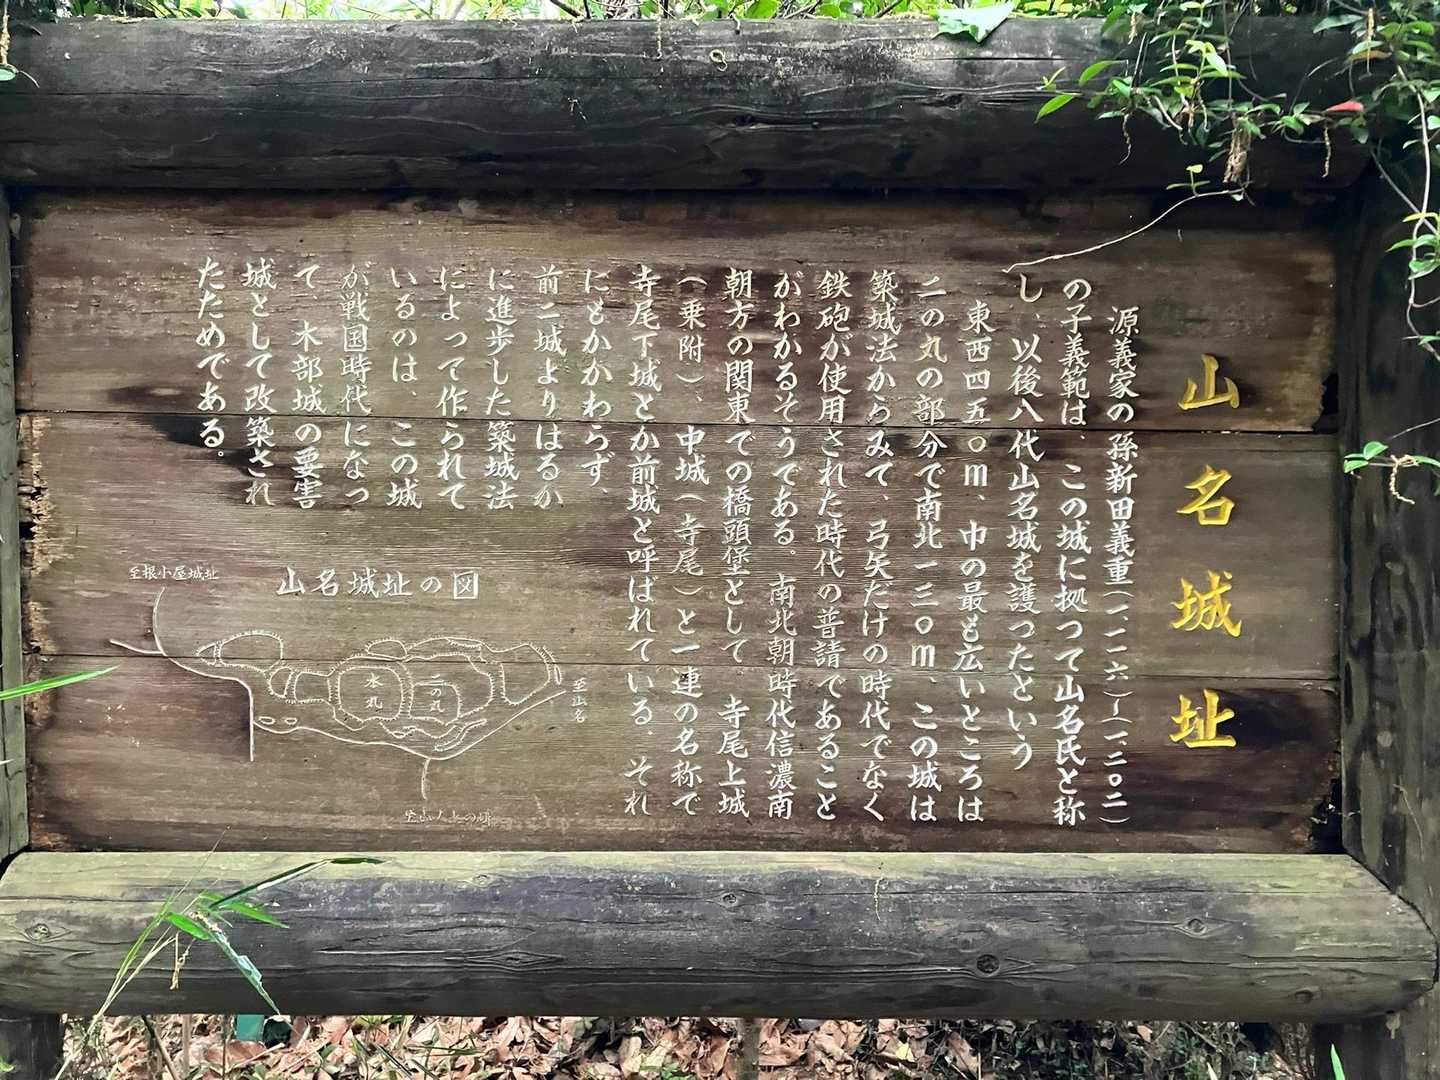 山名城址
源義家の孫新田義重(一、一一六〜(一、二〇二)
の子義範は、この城に拠って山名氏と称
し、以後八代山名城を護ったという
東西四五〇m、巾の最も広いところは
二の丸の部分で南北一三〇m、この城は
築城法からみて、弓矢だけの時代でなく
鉄砲が使用された時代の普請であること
がわかるそうである。南北朝時代信濃南
朝方の関東での橋頭堡として 寺尾上城
(乗附)、中城(寺尾)と一連の名称で
寺尾下城とか前城と呼ばれている、それ
にもかかわらず、
前二城よりはるか
に進歩した築城法
によって作られて
いるのは、この城
が戦国時代になっ
て、木部城の要害
城として改築され
たためである。
山名城址の図
至根小屋城址
本丸
二の丸
至山名